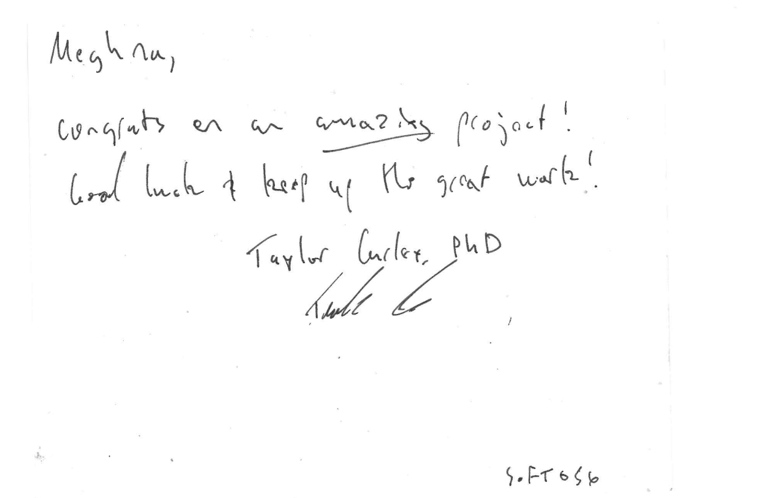 Meghna,
Congrats on an amazing project!
Good luck & keep up the great work!
Taylor Curlex, PhD
SOFT056